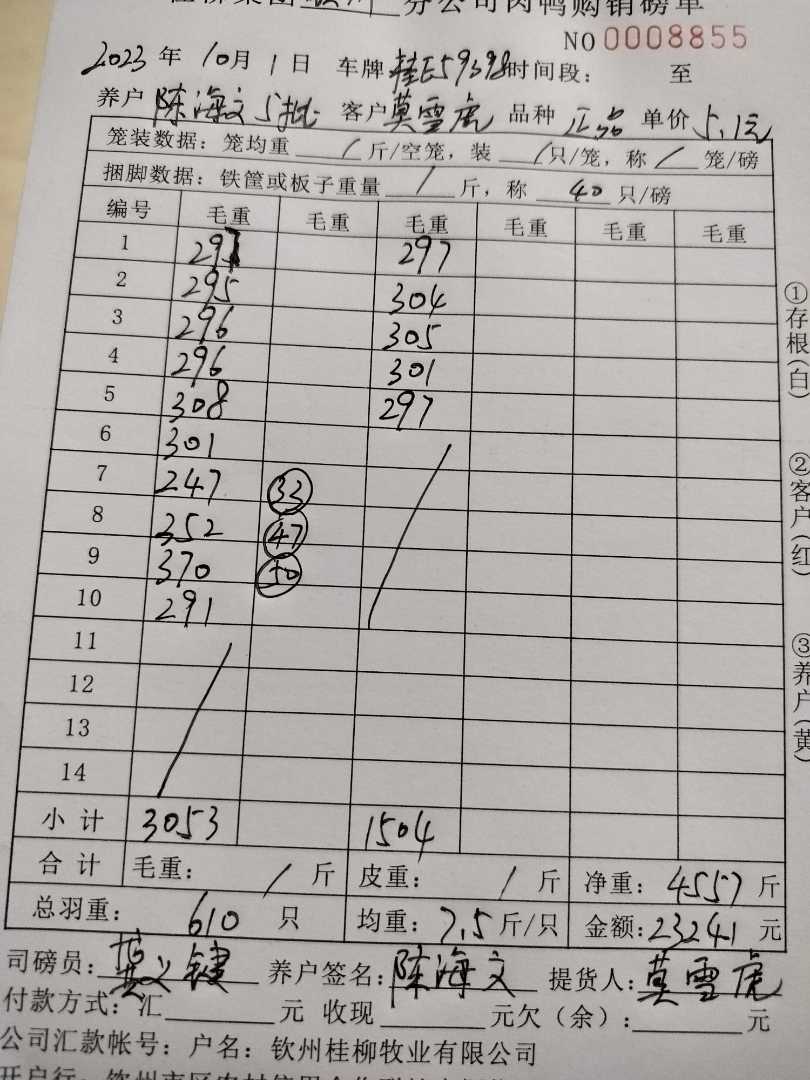 桂柳集团钦州分公司肉鸭购销磅单
NO 0008855
2023 年 10 月 1 日 车牌 桂E59398 时间段: 至
养户 陈海文5批 客户 莫雪虎 品种 正品 单价 5.1元
笼装数据: 笼均重 / 斤/空笼, 装 / 只/笼, 称 / 笼/磅
捆脚数据: 铁筐或板子重量 / 斤, 称 40 只/磅
编号 毛重 毛重 毛重 毛重 毛重 毛重
1 297 297
2 295 304
3 296 305
4 296 301
5 308 297
6 301
7 247 33
8 352 47
9 370 50
10 291
11
12
13
14
小计 3053 1504
合计 毛重: / 斤 皮重: / 斤 净重: 4557 斤
总羽重: 610 只 均重: 7.5 斤/只 金额: 23241 元
司磅员: 键 养户签名: 陈海文 提货人: 莫雪虎
付款方式: 汇 元 收现 元欠(余): 元
公司汇款帐号: 户名: 钦州桂柳牧业有限公司
开户行: 钦州市区农村信用合作
①存根(白)
②客户(红)
③养户(黄)